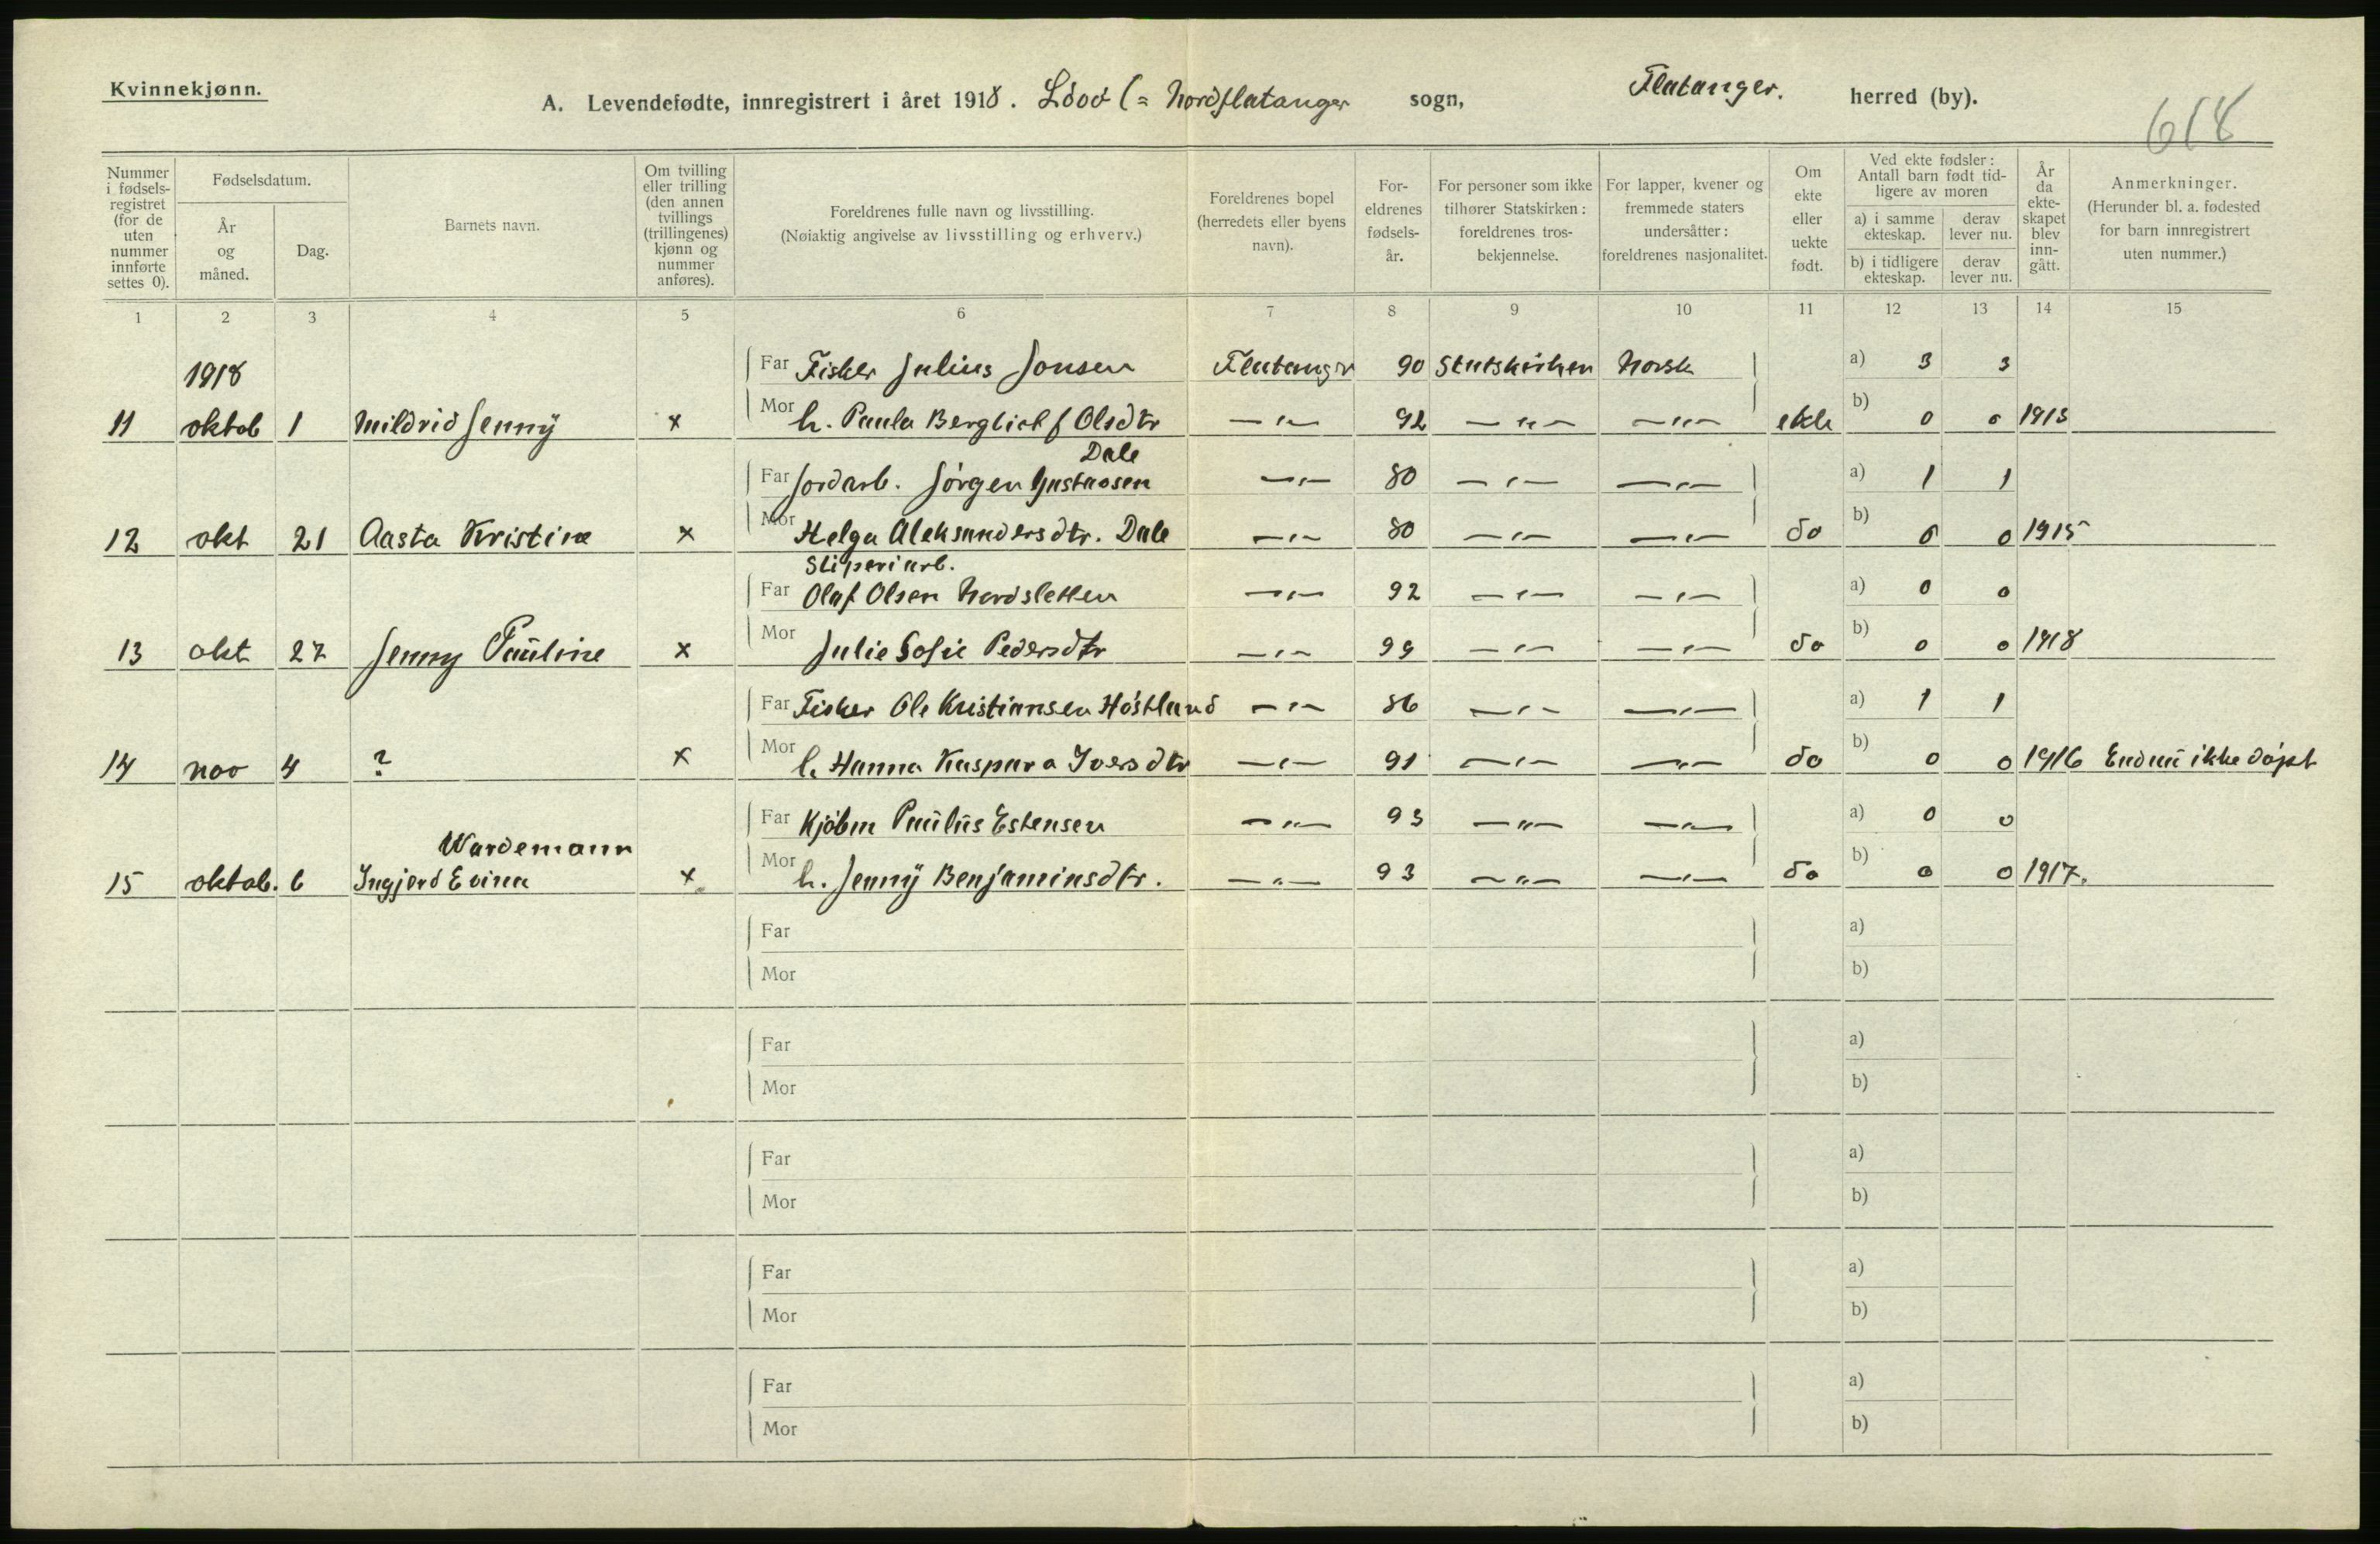 Kvinnekjønn.
A. Levendefødte, innregistrert i året 1918. Löov (= Nordflatanger sogn, Flatanger. herred (by).
618
Nummer i fødselsregistret (for de uten nummer innførte settes 0).
Fødselsdatum.
År og måned.
Dag.
Barnets navn.
Om tvilling eller trilling (den annen tvillings (trillingenes) kjønn og nummer anføres).
Foreldrenes fulle navn og livsstilling.
(Nøiaktig angivelse av livsstilling og erhverv.)
Foreldrenes bopel (herredets eller byens navn).
Foreldrenes fødselsår.
For personer som ikke tilhører Statskirken: foreldrenes trosbekjennelse.
For lapper, kvener og fremmede staters undersåtter: foreldrenes nasjonalitet.
Om ekte eller uekte født.
Ved ekte fødsler: Antall barn født tidligere av moren
a) i samme ekteskap. derav lever nu.
b) i tidligere ekteskap. derav lever nu.
År da ekteskapet blev inngått.
Anmerkninger.
(Herunder bl. a. fødested for barn innregistrert uten nummer.)
1 2 3 4 5 6 7 8 9 10 11 12 13 14 15
1918 Far Fisker Julius Jonsen Flatanger 90 Statskirken Norsk a) 3 3
11 oktob 1 Mildrid Jenny x Mor h. Paula Bergliot f Olsdtr —"— 92 —"— —"— ekte b) 0 0 1913
Dale
Far Jordarb. Jörgen Gustavsen —"— 80 —"— —"— a) 1 1
12 okt 21 Aasta Kristine x Mor Helga Aleksandersdtr. Dale —"— 80 —"— —"— do b) 0 0 1915
Sliperiarb.
Far Olaf Olsen Nordsletten —"— 92 —"— —"— a) 0 0
13 okt 27 Jenny Pauline x Mor Julie Sofie Pedersdtr —"— 99 —"— —"— do b) 0 0 1918
Far Fisker Ole Kristiansen Höstland —"— 86 —"— —"— a) 1 1
14 nov 4 ? x Mor h. Hanna Kaspara Iversdtr —"— 91 —"— —"— do b) 0 0 1916 Endnu ikke döpt
Far Kjöbm Paulus Estensen —"— 93 —"— —"— a) 0 0
Wardemann
15 oktob. 6 Ingjerd Evina x Mor h. Jenny Benjaminsdtr. —"— 93 —"— —"— do b) 0 0 1917.
Far a)
Mor b)
Far a)
Mor b)
Far a)
Mor b)
Far a)
Mor b)
Far a)
Mor b)